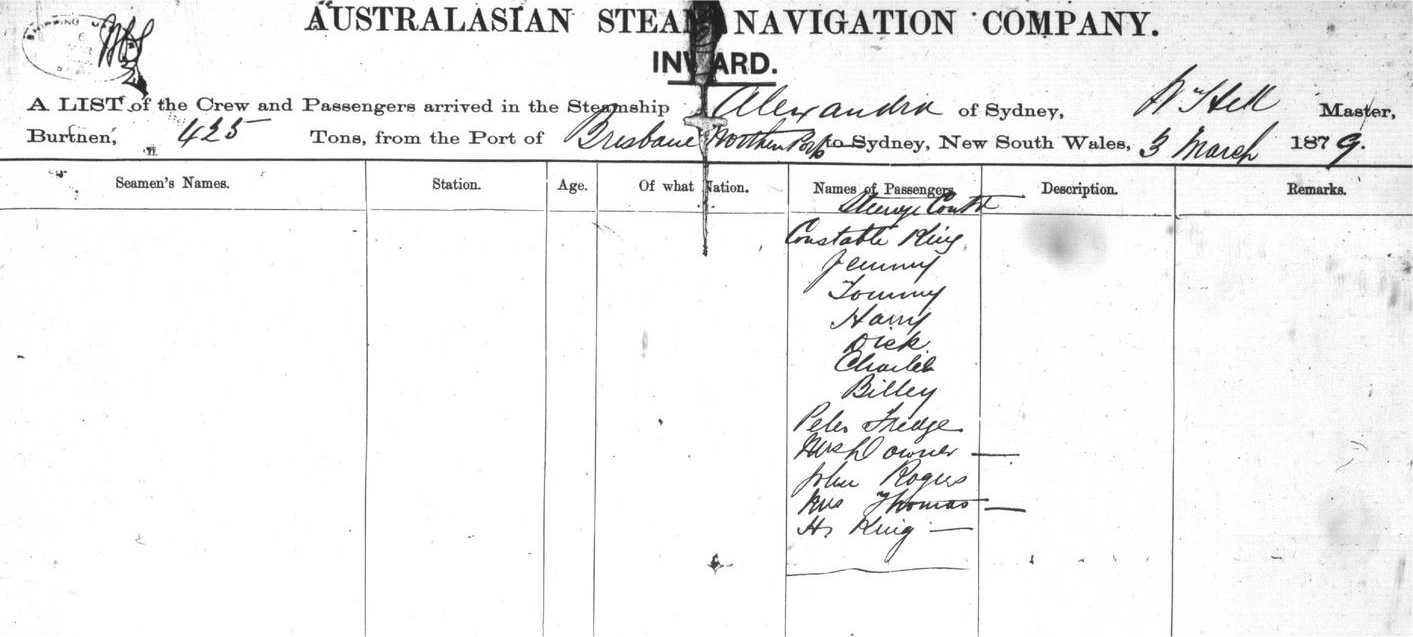 AUSTRALASIAN STEAM NAVIGATION COMPANY.
INWARD.
A LIST of the Crew and Passengers arrived in the Steamship Alexandra of Sydney, Master,
Burthen, 425 Tons, from the Port of Brisbane Northern Ports to Sydney, New South Wales, 3 March 1879.
Seamen's Names. Station. Age. Of what Nation. Names of Passengers Description. Remarks.
Steerage Contd
Constable King
Jemmy
Tommy
Harry
Dick
Charlie
Billey
Peter
Downer
John Rogers
Mrs Thomas
Hy King